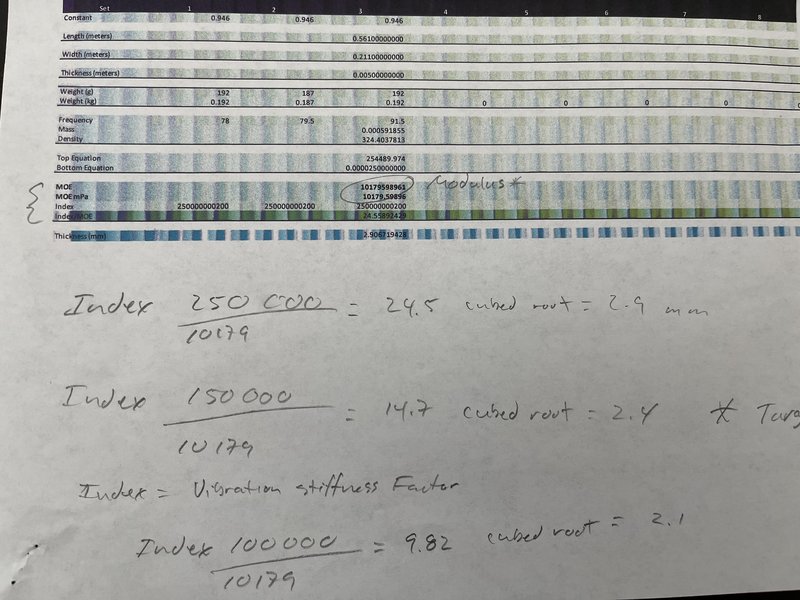 Set 1 2 3 4 5 6 7 8
Constant 0.946 0.946 0.946
Length (meters) 0.56100000000
Width (meters) 0.21100000000
Thickness (meters) 0.00500000000
Weight (g) 192 187 192
Weight (kg) 0.192 0.187 0.192 0 0 0 0
Frequency 78 79.5 91.5
Mass 0.000591855
Density 324.4037813
Top Equation 254489.974
Bottom Equation 0.0000250000000
MOE 10179598961 Modulus*
MOE mPa 10179.59896
Index 250000000200 250000000200 250000000200
Index/MOE 24.55892429
Thickness (mm) 2.906719428
Index 250 000 / 10179 = 24.5 cubed root = 2.9 mm
Index 150 000 / 10179 = 14.7 cubed root = 2.4 * Targ
Index = Vibration stiffness Factor
Index 100 000 / 10179 = 9.82 cubed root = 2.1